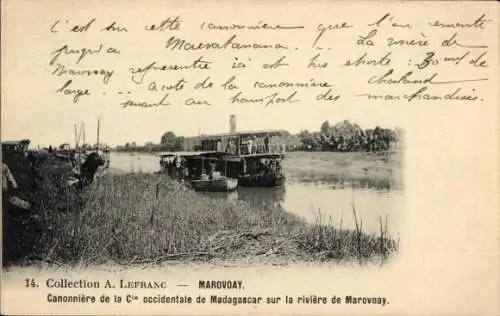 C'est sur cette canonnière que l'on remonte
jusqu'à Maevatanana... La rivière de
Marovoay représentée ici est très étroite: 30m de
large, A coté de la canonnière chaland
servant au transport des marchandises,
14. Collection A. LEFRANC. — MAROVOAY.
Canonnière de la Cie occidentale de Madagascar sur la rivière de Marovoay.